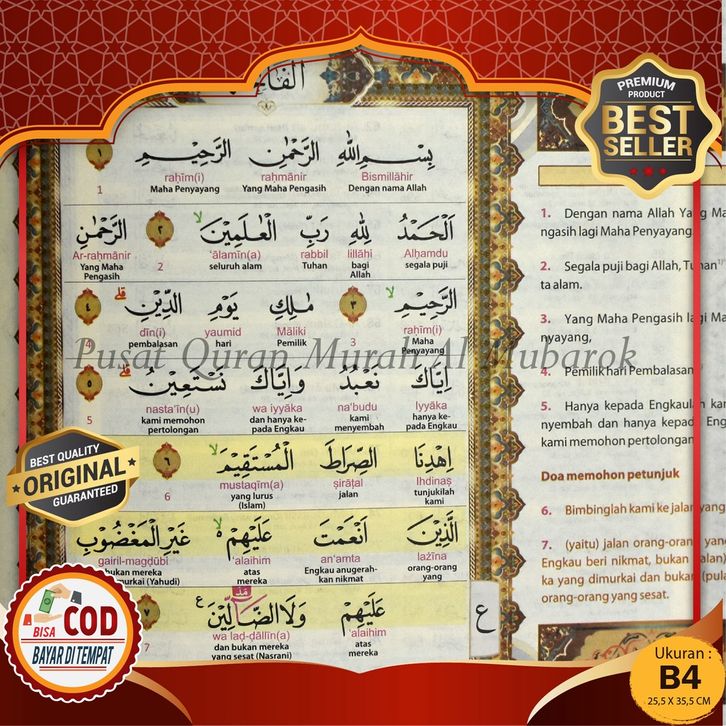 الفاتحة
PREMIUM
PRODUCT
BEST
SELLER
بِسْمِ اللهِ الرَّحْمٰنِ الرَّحِيْمِ ١
Bismillāhir raḥmānir raḥīm(i) 1
Dengan nama Allah Yang Maha Pengasih Maha Penyayang
اَلْحَمْدُ لِلهِ رَبِّ الْعٰلَمِيْنَ ۙ ٢ الرَّحْمٰنِ
Alḥamdu lillāhi rabbil ‘ālamīn(a) 2 Ar-raḥmānir
segala puji bagi Allah Tuhan seluruh alam Yang Maha Pengasih
الرَّحِيْمِ ۙ ٣ مٰلِكِ يَوْمِ الدِّيْنِ ۗ ٤
raḥīm(i) 3 Māliki yaumid dīn(i) 4
Maha Penyayang Pemilik hari pembalasan
Pusat Quran Murah Al Mubarok
اِيَّاكَ نَعْبُدُ وَاِيَّاكَ نَسْتَعِيْنُ ۗ ٥
Iyyāka na‘budu wa iyyāka nasta‘īn(u) 5
hanya kepada Engkau kami menyembah dan hanya kepada Engkau kami memohon pertolongan
اِهْدِنَا الصِّرَاطَ الْمُسْتَقِيْمَ ۙ ٦
Ihdinaṣ ṣirāṭal mustaqīm(a) 6
tunjukilah kami jalan yang lurus (Islam)
الَّذِيْنَ اَنْعَمْتَ عَلَيْهِمْ ۙ غَيْرِ الْمَغْضُوْبِ
lażīna an‘amta ‘alaihim gairil-magḍūbi
orang-orang yang Engkau anugerahkan nikmat atas mereka bukan mereka murkai (Yahudi)
عَلَيْهِمْ وَلَا الضَّاۤلِّيْنَ ٧
‘alaihim wa laḍ-ḍāllīn(a) 7
atas mereka dan bukan mereka yang sesat (Nasrani)
ع
1. Dengan nama Allah Yang Ma
ngasih lagi Maha Penyayang
2. Segala puji bagi Allah, Tuhan
ta alam.
3. Yang Maha Pengasih lagi Ma
nyayang,
4. Pemilik hari Pembalasan
5. Hanya kepada Engkaulah kam
nyembah dan hanya kepada Eng
kami memohon pertolongan
Doa memohon petunjuk
6. Bimbinglah kami ke jalan yang
7. (yaitu) jalan orang-orang yang
Engkau beri nikmat, bukan (jalan)
ka yang dimurkai dan bukan (pul
orang-orang yang sesat.
BEST QUALITY
ORIGINAL
GUARANTEED
BISA
COD
BAYAR DI TEMPAT
Ukuran :
B4
25,5 X 35,5 CM